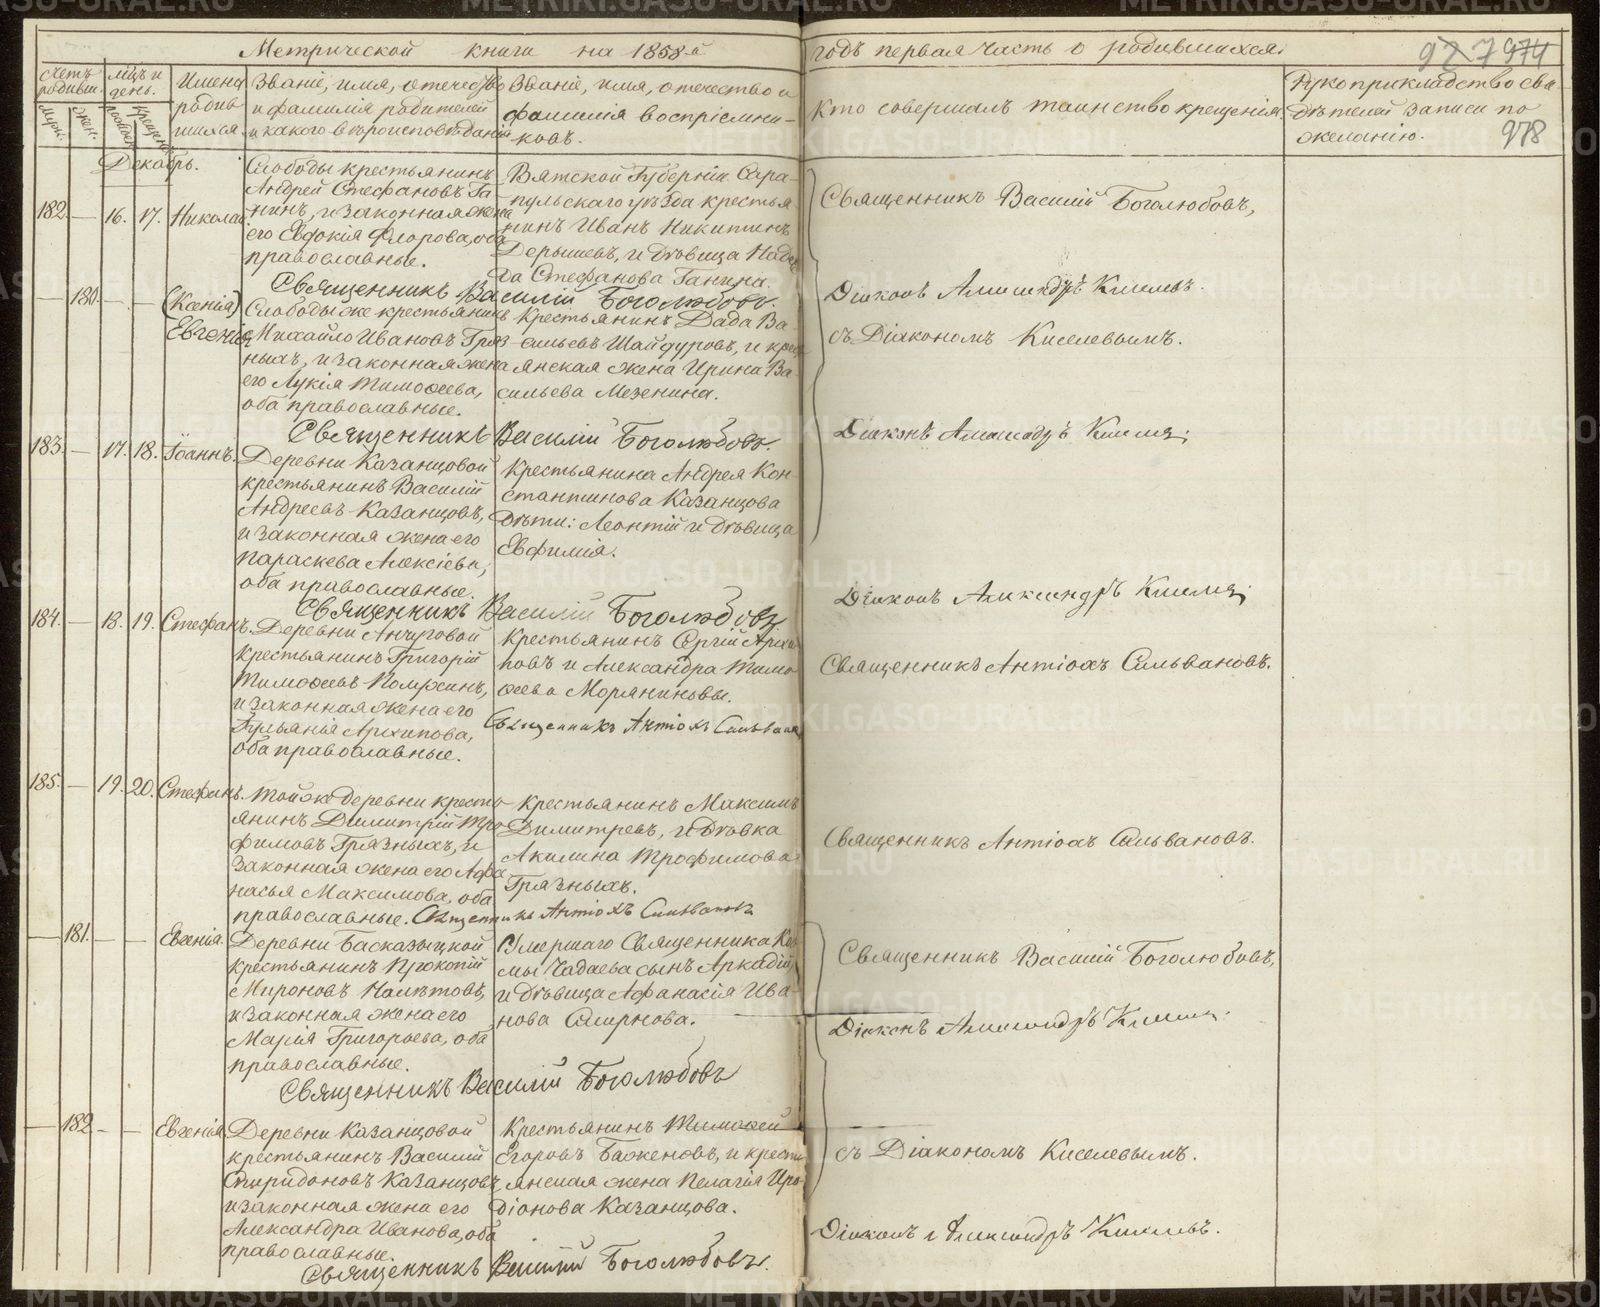 Метрической книги на 1858й годъ первая часть о родившихся.
927 974
978
Счетъ родивш.
Муж.
Жен.
Мцъ и день.
рожден.
крещен.
Имена родив
шихся
Званіе, имя, отечество
и фамилія родителей
и какого вѣроисповѣданія
Званіе, имя, отечество и
фамилія воспріемни-
ковъ.
Кто совершалъ таинство крещенія.
Рукоприкладство сви
дѣтелей записи по
желанію.
Декабрь.
182. — 16. 17. Николай
Слободы крестьянинъ
Андрей Стефановъ Га-
нинъ, и законная жена
его Евдокія Флорова, оба
православные.
Вятской Губерніи Сара-
пульскаго уѣзда крестья
нинъ Иванъ Никитинъ
Дерышевъ, и дѣвица Надеж
да Стефанова Ганина.
Священникъ Василій Боголюбовъ.
Священникъ Василій Боголюбовъ,
Діаконъ Александръ Киселевъ.
— 180. — — (Ксенія)
Евгенія
Слободы же крестьянинъ
Михайло Ивановъ Гряз
ныхъ, и законная жена
его Лукія Тимофеева,
оба православные.
Крестьянинъ Дада Ва-
сильевъ Шайдуровъ, и крес
янская жена Ирина Ва-
сильева Мезенина.
Священникъ Василій Боголюбовъ.
съ Діакономъ Киселевымъ.
Діаконъ Александръ Киселевъ
183. — 17. 18. Іоаннъ.
Деревни Казанцовой
крестьянинъ Василій
Андреевъ Казанцовъ,
и законная жена его
Параскева Алексіева,
оба православные.
Крестьянина Андрея Кон
стантинова Казанцова
дѣти: Леонтій и дѣвица
Евфимія.
Священникъ Василій Боголюбовъ
Діаконъ Александръ Киселевъ
184. — 18. 19. Стефанъ.
Деревни Анчуговой
крестьянинъ Григорій
Тимофеевъ
и законная жена его
Архипова,
оба православные.
Крестьянинъ Сергій Архи
повъ и Александра Тимо
феева Моряниновы.
Священникъ Антіохъ Сильванов
Священникъ Антіохъ Сильвановъ.
185. — 19. 20. Стефанъ.
Той же деревни кресть
янинъ Димитрій Тро
фимовъ Грязныхъ, и
законная жена его Афа
насья Максимова, оба
православные. Священникъ Антіохъ Сильвановъ
Крестьянинъ Максимъ
Димитревъ, и дѣвка
Акилина Трофимова
Грязныхъ.
Священникъ Антіохъ Сильвановъ.
— 181. — — Евгенія.
Деревни
крестьянинъ Прокопій
Мироновъ Налѣтовъ,
и законная жена его
Марія Григорьева, оба
православные.
Умершаго Священника Коз
мы Чадаева сынъ Аркадій,
и дѣвица Афанасія Ива-
нова Смирнова.
Священникъ Василій Боголюбовъ
Священникъ Василій Боголюбовъ,
Діаконъ Александръ Киселевъ
— 182. — — Евгенія.
Деревни Казанцовой
крестьянинъ Василій
Спиридоновъ Казанцовъ,
и законная жена его
Александра Иванова, оба
православные.
Крестьянинъ Тимофей
Егоровъ Баженовъ, и кресть
янская жена Пелагія Иро-
діонова Казанцова.
Священникъ Василій Боголюбовъ.
съ Діакономъ Киселевымъ.
Діаконъ Александръ Киселевъ.
METRIKI.GASO-URAL.RU